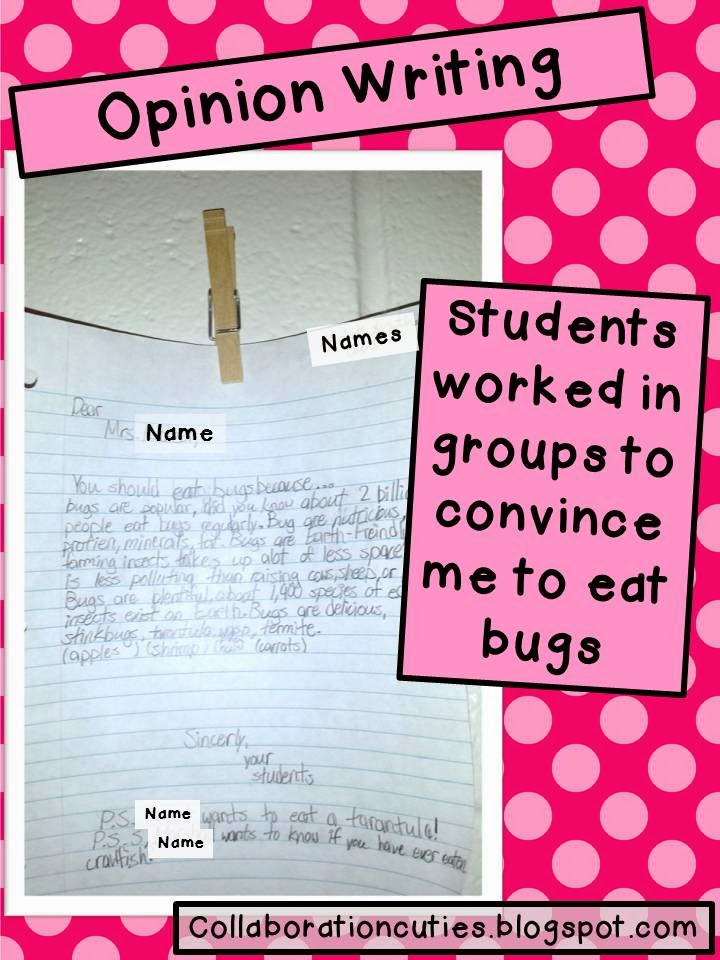 Opinion Writing
Names
Dear
Mrs. Name
You should eat bugs because...
bugs are popular, did you know about 2 billi
people eat bugs regularly. Bug are nutricious,
protien, minerals, fat. Bugs are Earth-Freindl
farming insects takes up alot of less space
is less polluting than raising cows, sheep, or
Bugs are plentiful, about 1,400 species of e
insects exist on Earth. Bugs are delicious,
stinkbugs, tarantula, termite.
(apples) (shrimp) (carrots)
Sincerly,
your
students
P.S. Name wants to eat a tarantula!
P.S.S. Name wants to know if you have ever eaten
crawfish.
Students
worked in
groups to
convince
me to eat
bugs
Collaborationcuties.blogspot.com